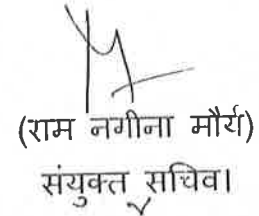 (राम नगीना मौर्य)
संयुक्त सचिव।